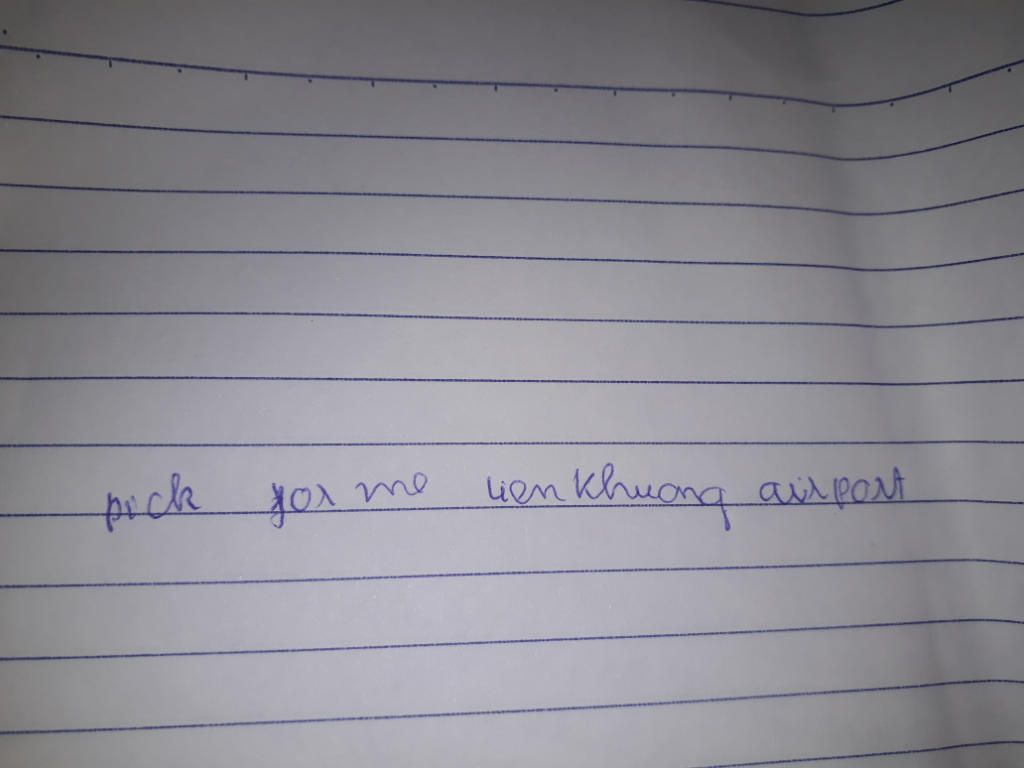 pick for me lien Khuong airport